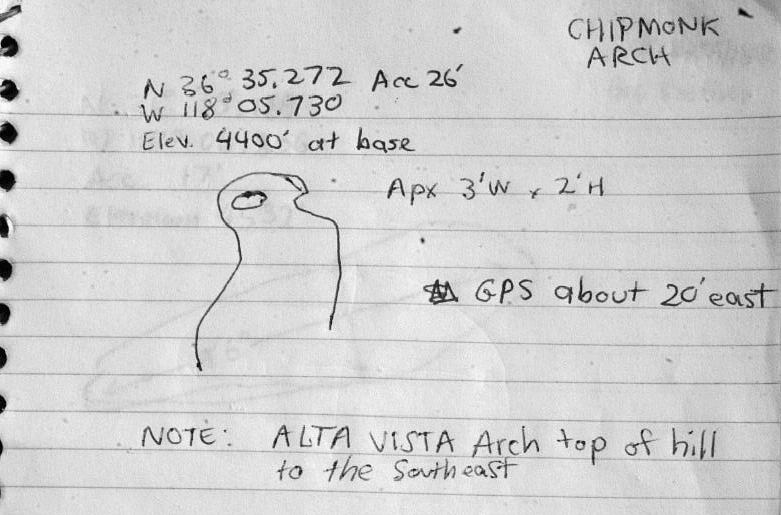 CHIPMONK
ARCH
N 36° 35.272 Acc 26'
W 118° 05.730
Elev. 4400' at base
Apx 3'W x 2'H
GPS about 20' east
NOTE: ALTA VISTA Arch top of hill
to the Southeast